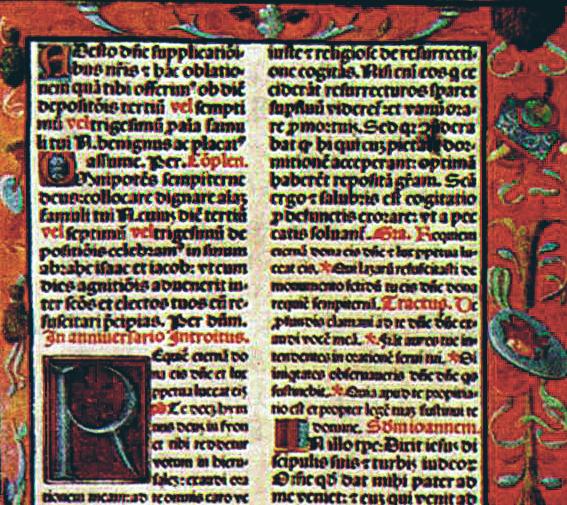 Adesto dñe supplicatiõi-
bus nr̃is ⁊ hãc oblatio-
nem quã tibi offerimꝰ ob diẽ
depositõis tertiũ vel septi
mũ vel trigesimũ ꝓ aĩa famu
li tui N. benignus ac placatꝰ
assume. Per. Cõplen.
Omnipotẽs sempiterne
deus: collocare dignare aĩaȝ
famuli tui N. cuius diẽ tertiũ
vel septimũ vel trigesimũ de
positiõis celebramꝰ in sinum
abrahe isaac et iacob: vt cum
dies agnitiõis aduenerit in-
ter scõs et electos tuos eũ re-
suscitari p̃cipias. Per dñm.
In anniuersario Introitus.
REquiẽ eternã do
na eis dñe et lux
ꝑpetua luceat eis
Te decȝ hym
nus deus in syon
et tibi reddetur
votum in hieru-
salȝ: exaudi ora
tionem meam: ad te omnis caro ve
iuste ⁊ religiose de resurrecti-
one cogitãs. Nisi em̃ eos q̃ ce
ciderãt resurrecturos speraret
supfluũ videret̃ et vanũ ora-
re ꝓ mortuis. Sed qꝛ cõsidera
bat ꝙ hi qui cum pietate dor-
mitionẽ acceperant: optimã
haberẽt repositã gr̃am. Scã
ergo ⁊ salubris est cogitatio
ꝓ defunctis exorare: vt a pec
catis soluant̃. Gra. Requiem
eternã dona eis dñe ⁊ lux ꝑpetua lu-
ceat eis. Qui lazarũ resuscitasti de
monumento fetidũ tu eis dñe dona
requiẽ sempiternã. Tractus. De
ꝓfundis clamaui ad te dñe dñe ex-
audi vocẽ meã. Fiãt aures tue in-
tendentes in orationẽ serui tui. Si
iniqtates obseruaueris dñe dñe qs
sustinebit. Quia apud te propitia-
tio est et propter legẽ tuaȝ sustinui te
domine. Scďm ioannem.
IN illo tpe: Dixit iesus di
scipulis suis ⁊ turbis iudeoꝝ
Om̃e qd̃ dat mihi pater ad
me veniet: ⁊ eum qui venit ad